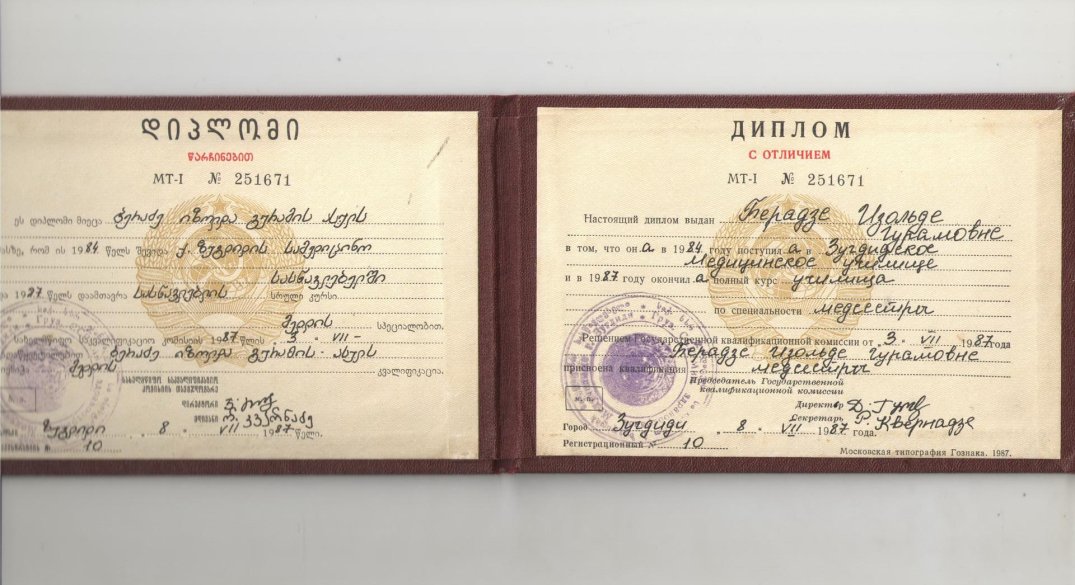 დიპლომი
წარჩინებით
МТ-I № 251671
ეს დიპლომი მიეცა ბერაძე იზოლდა გურამის ასულს
მასზე, რომ ის 1984 წელს შევიდა ქ. ზუგდიდის სამედიცინო
სასწავლებელში
და 1987 წელს დაამთავრა სასწავლებლის სრული კურსი
მედდის სპეციალობით.
სახელმწიფო საკვალიფიკაციო კომისიის 1987 წლის 3 · VII –
გადაწყვეტილებით ბერაძე იზოლდა გურამის ასულს
მედდის კვალიფიკაცია.
სახელმწიფო საკვალიფიკაციო
კომისიის თავმჯდომარე
დირექტორი
მდივანი რ. კვერნაძე
ზუგდიდი 8 · VII 1987 წელი.
10
ДИПЛОМ
С ОТЛИЧИЕМ
МТ-I № 251671
Настоящий диплом выдан Берадзе Изольде
Гурамовне
в том, что он а в 1984 году поступил а в Зугдидское
Медицинское училище
и в 1987 году окончил а полный курс училища
по специальности медсестры
Решением Государственной квалификационной комиссии от 3 · VII 1987 года
Берадзе Изольде Гурамовне
присвоена квалификация медсестры
Председатель Государственной
квалификационной комиссии
М. П.
Директор
Секретарь Р. Квернадзе
Город Зугдиди 8 · VII 1987 года.
Регистрационный № 10
Московская типография Гознака. 1987.